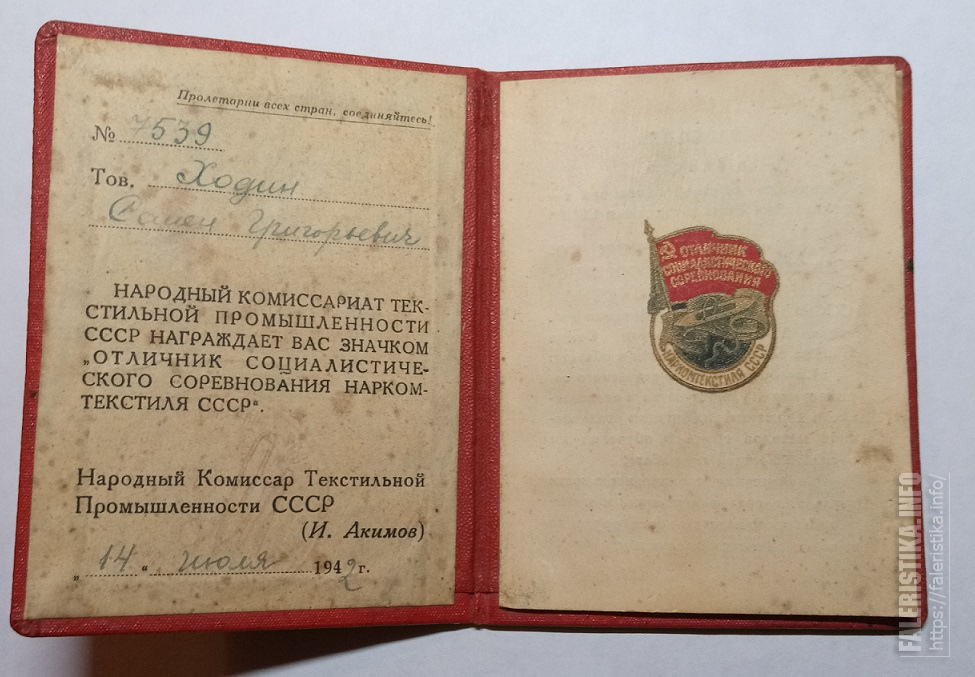 Пролетарии всех стран, соединяйтесь!
№ 7539
Тов. Ходин
Семен Григорьевич
НАРОДНЫЙ КОМИССАРИАТ ТЕК-
СТИЛЬНОЙ ПРОМЫШЛЕННОСТИ
СССР НАГРАЖДАЕТ ВАС ЗНАЧКОМ
„ОТЛИЧНИК СОЦИАЛИСТИЧЕ-
СКОГО СОРЕВНОВАНИЯ НАРКОМ-
ТЕКСТИЛЯ СССР“.
Народный Комиссар Текстильной
Промышленности СССР
(И. Акимов)
„14“ июля 1942 г.
ОТЛИЧНИК
СОЦИАЛИСТИЧЕСКОГО
СОРЕВНОВАНИЯ
НАРКОМТЕКСТИЛЯ СССР
FALERISTIKA.INFO
https://faleristika.info/